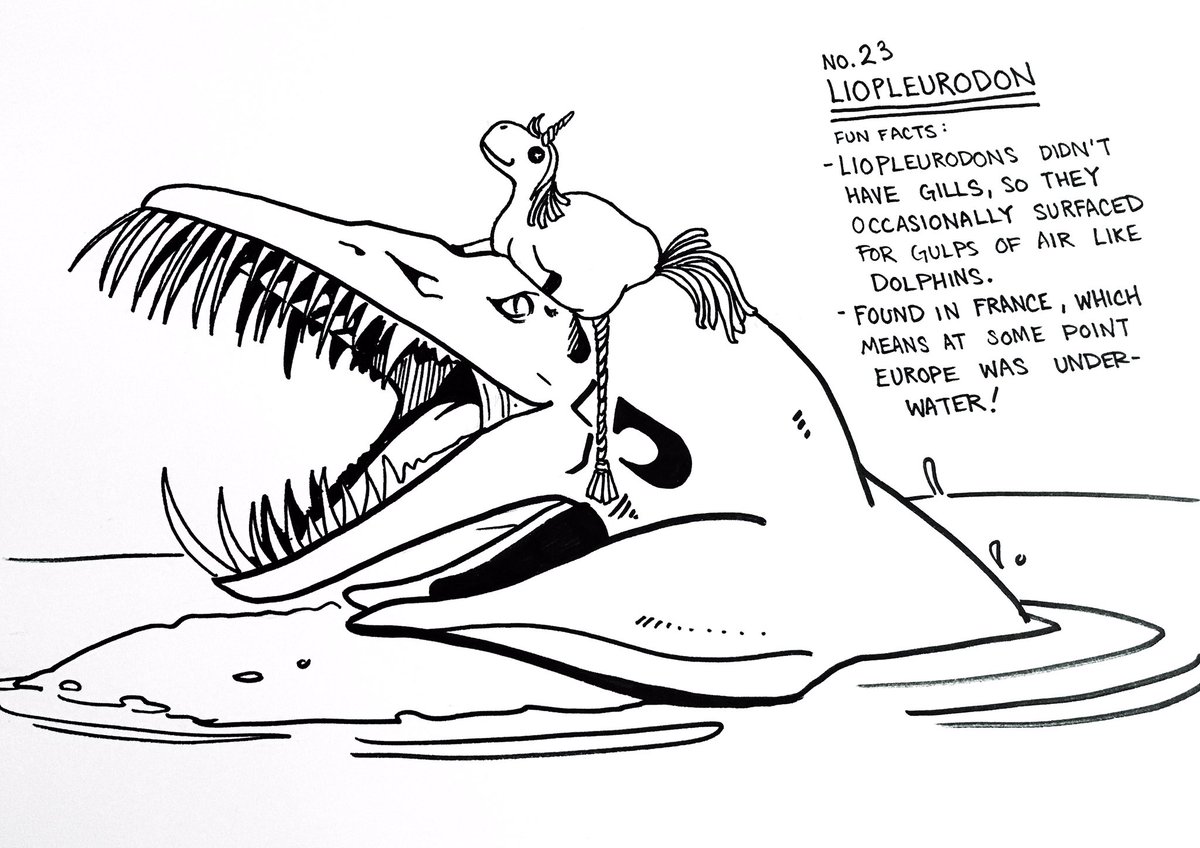 NO. 23
LIOPLEURODON
FUN FACTS:
- LIOPLEURODONS DIDN'T
HAVE GILLS, SO THEY
OCCASIONALLY SURFACED
FOR GULPS OF AIR LIKE
DOLPHINS.
- FOUND IN FRANCE, WHICH
MEANS AT SOME POINT
EUROPE WAS UNDER-
WATER!